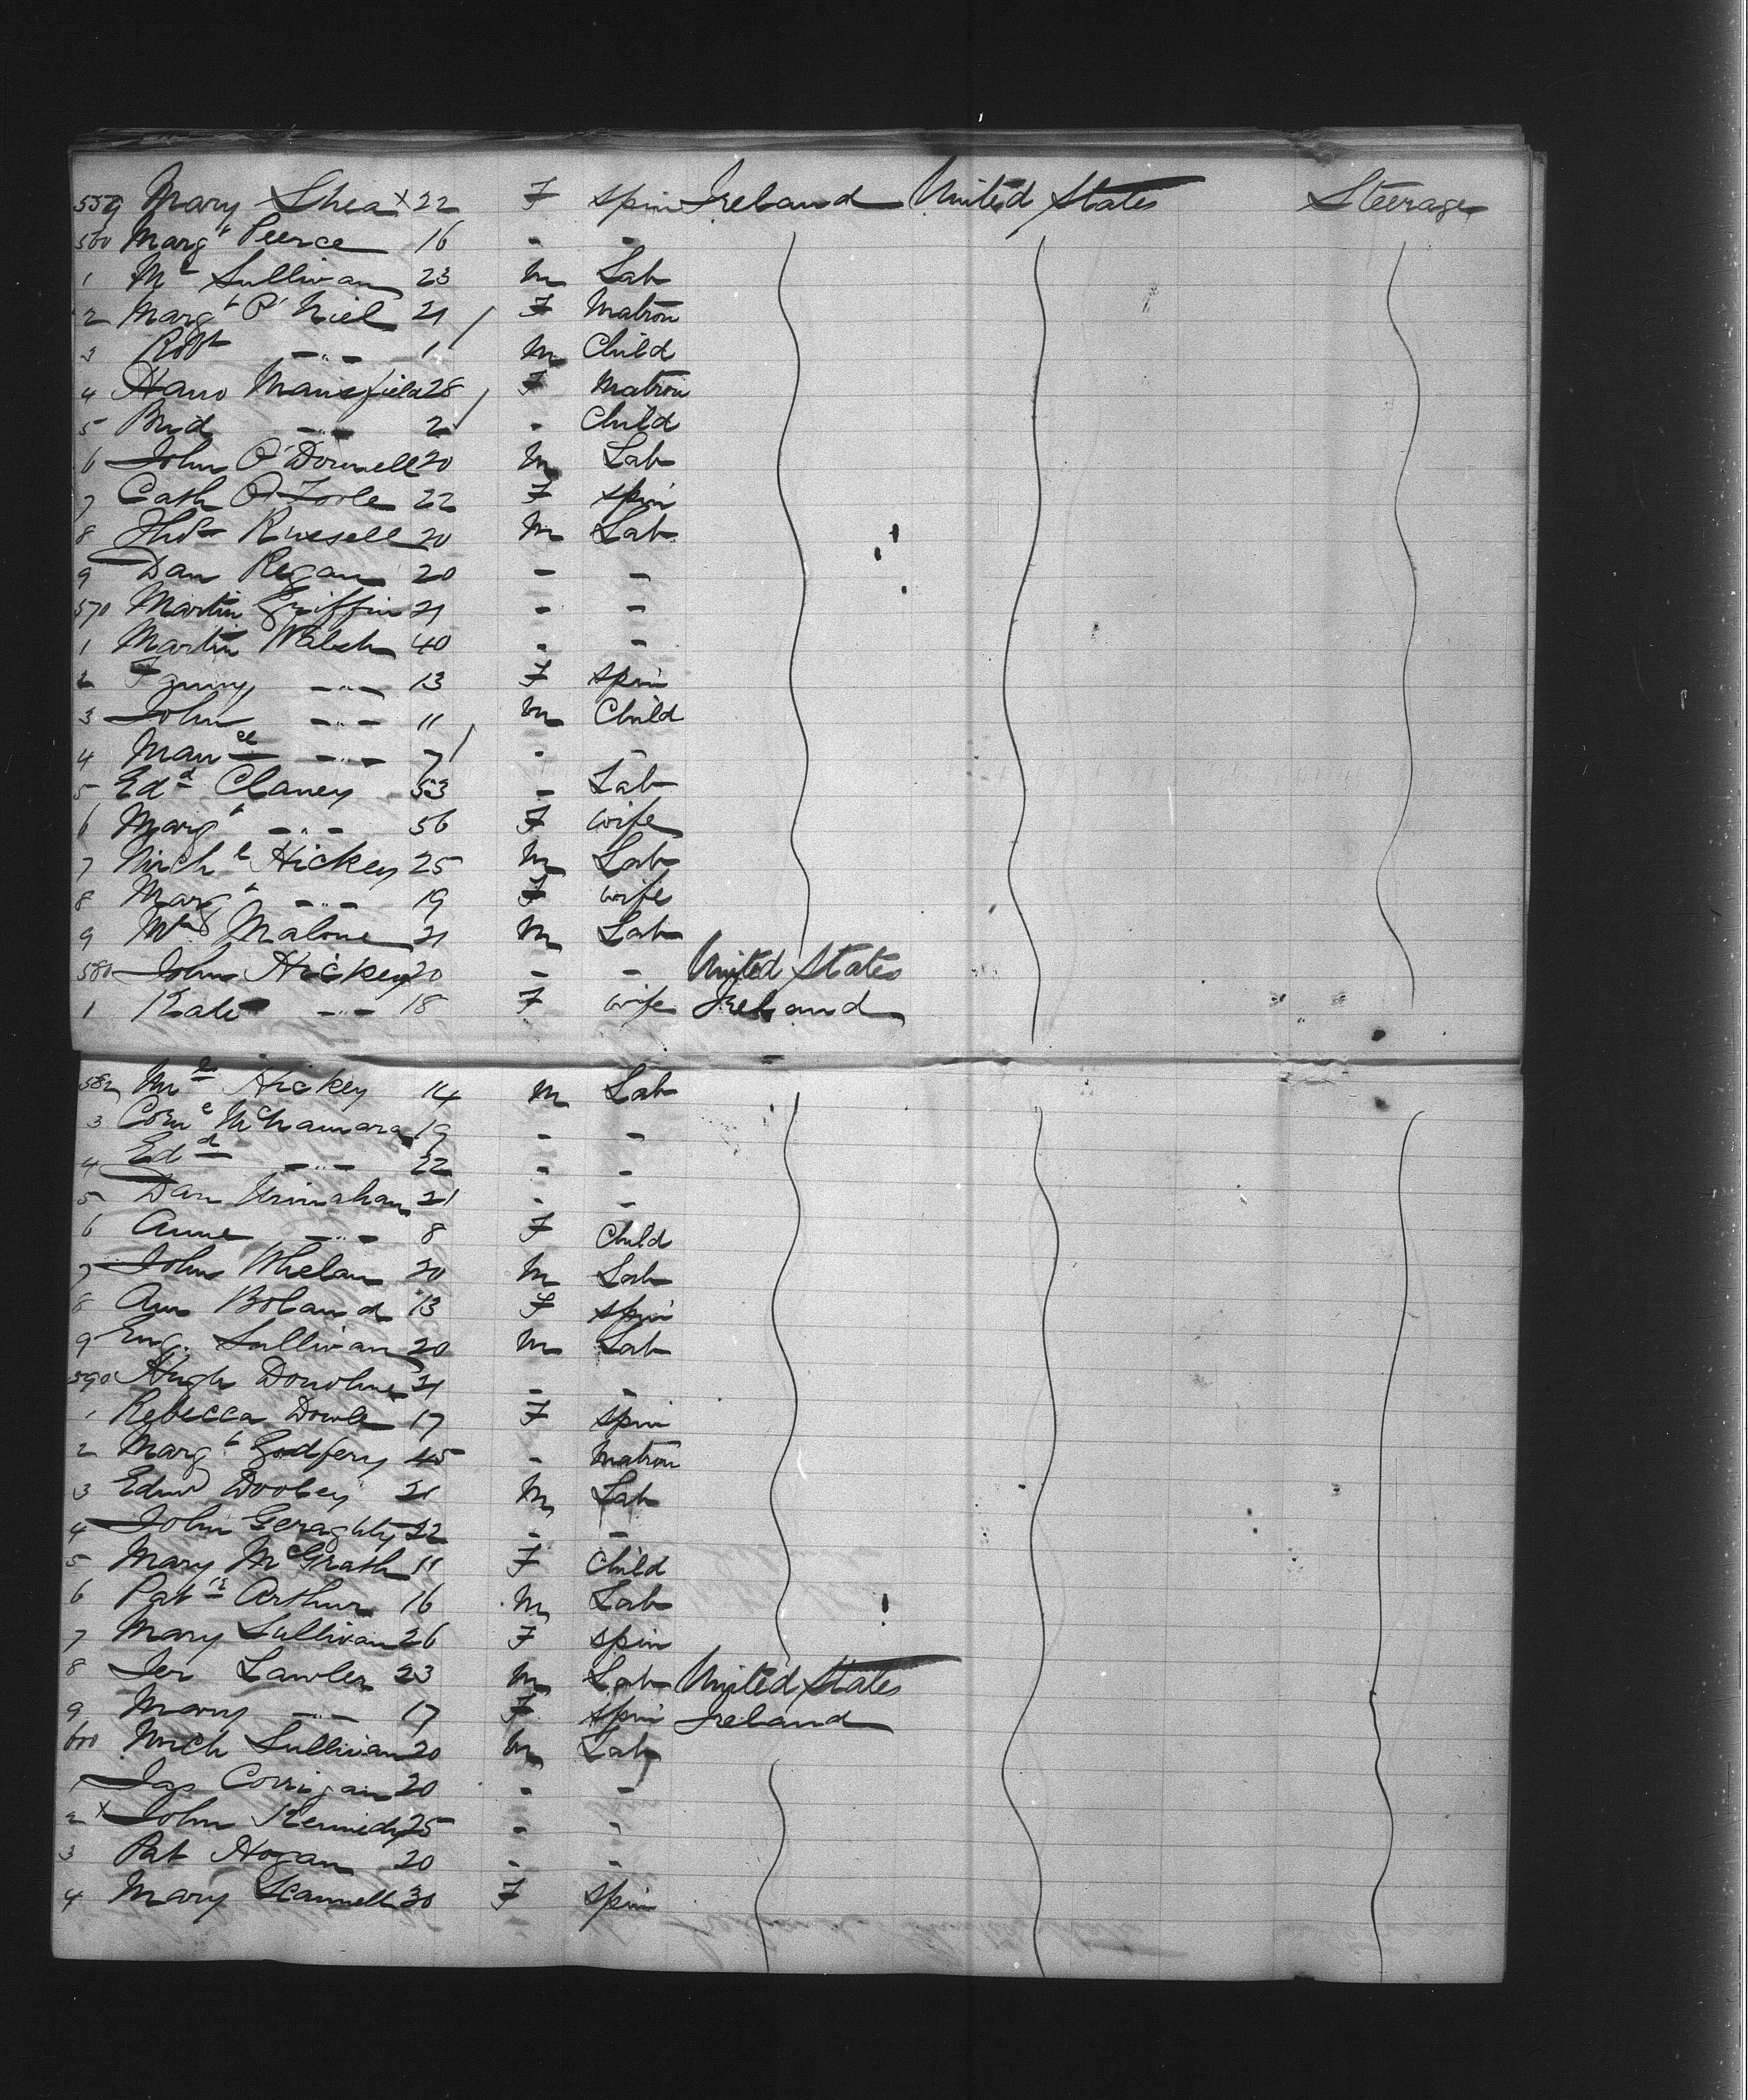 559 Mary Shea x 22 F Spin Ireland United States Steerage
560 Margt Peerce 16 - -
1 Mt Sullivan 23 M Lab
2 Margt O'Niel 21 F Matron
3 Robt -"- 1 M Child
4 Hano Mansfield 28 F Matron
5 Brid -"- 2 - Child
6 John O'Donnell 20 M Lab
7 Cath O'Toole 22 F Spin
8 Thos Russell 20 M Lab
9 Dan Regan 20 - -
570 Martin Griffin 21 - -
1 Martin Walsh 40 - -
2 Fanny -"- 13 F Spin
3 John -"- 11 M Child
4 -"- 7 - -
5 Edd Clancy 53 - Lab
6 Margt -"- 56 F Wife
7 Michl Hickey 25 M Lab
8 Margt -"- 19 F Wife
9 Malone 21 M Lab
580 John Hickey 20 - - United States
1 Kate -"- 18 F Wife Ireland
582 Hickey 14 M Lab
3 McNamara 19 - -
4 Edd -"- 22 - -
5 Dan 21 - -
6 Anne -"- 8 F Child
7 John Whelan 20 M Lab
8 Ann Boland 13 F Spin
9 Eug. Sullivan 20 M Lab
590 Hugh Donohue 21 - -
1 Rebecca Dowle 17 F Spin
2 Margt Godfery 45 - Matron
3 Edmd Dooley 21 M Lab
4 John Geraghty 22 - -
5 Mary McGrath 11 F Child
6 Patk Arthur 16 M Lab
7 Mary Sullivan 26 F Spin
8 Jer Lawler 23 M Lab United States
9 Mary -"- 17 F Spin Ireland
600 Mich Sullivan 20 M Lab
1 Jas Corrigan 20 - -
2 x John Kennedy 25 - -
3 Pat Hogan 20 - -
4 Mary Scannell 30 F Spin